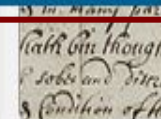 in many par
hath bin though
sober and discr
& Condition of th